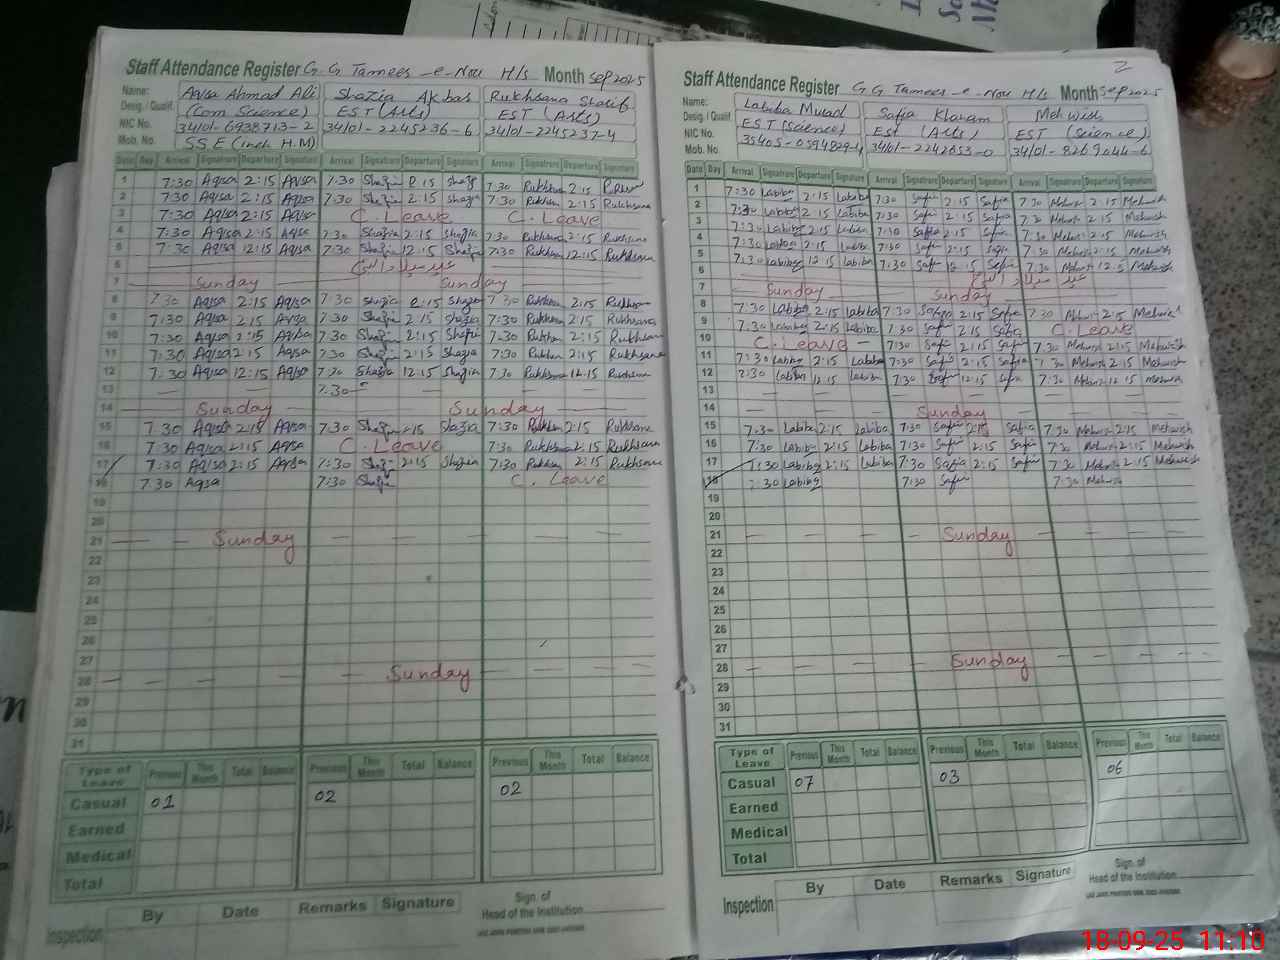 Staff Attendance Register G G Tameer-e-Nou H/s Month Sep 2025
Name: Aqsa Ahmad Ali Shazia Akbar Rukhsana Sharif
Desig. / Qualif. (Com Science) EST (Arts) EST (Arts)
NIC No. 34101-6938713-2 34101-2245236-6 34101-2245237-4
Mob. No. SSE (inch H.M)
Date Day Arrival Signature Departure Signature Arrival Signature Departure Signature Arrival Signature Departure Signature
1 7:30 Aqsa 2:15 Aqsa 7:30 Shazia 2:15 Shazia 7:30 Rukhsana 2:15
2 7:30 Aqsa 2:15 Aqsa 7:30 Shazia 2:15 Shazia 7:30 Rukhsana 2:15 Rukhsana
3 7:30 Aqsa 2:15 Aqsa C. Leave C. Leave
4 7:30 Aqsa 2:15 Aqsa 7:30 Shazia 2:15 Shazia 7:30 Rukhsana 2:15 Rukhsana
5 7:30 Aqsa 12:15 Aqsa 7:30 Shazia 12:15 Shazia 7:30 Rukhsana 12:15 Rukhsana
6 عید میلاد النبی
7 Sunday Sunday
8 7:30 Aqsa 2:15 Aqsa 7:30 Shazia 2:15 Shazia 7:30 Rukhsana 2:15 Rukhsana
9 7:30 Aqsa 2:15 Aqsa 7:30 Shazia 2:15 Shazia 7:30 Rukhsana 2:15 Rukhsana
10 7:30 Aqsa 2:15 Aqsa 7:30 Shazia 2:15 Shazia 7:30 Rukhsana 2:15 Rukhsana
11 7:30 Aqsa 2:15 Aqsa 7:30 Shazia 2:15 Shazia 7:30 Rukhsana 2:15 Rukhsana
12 7:30 Aqsa 12:15 Aqsa 7:30 Shazia 12:15 Shazia 7:30 Rukhsana 12:15 Rukhsana
13 7:30
14 Sunday Sunday
15 7:30 Aqsa 2:15 Aqsa 7:30 Shazia 2:15 Shazia 7:30 Rukhsana 2:15 Rukhsana
16 7:30 Aqsa 2:15 Aqsa C. Leave 7:30 Rukhsana 2:15 Rukhsana
17 7:30 Aqsa 2:15 Aqsa 7:30 Shazia 2:15 Shazia 7:30 Rukhsana 2:15 Rukhsana
18 7:30 Aqsa 7:30 Shazia C. Leave
19
20
21 Sunday
22
23
24
25
26
27
28 Sunday
29
30
31
Type of Leave Previous This Month Total Balance Previous This Month Total Balance Previous This Month Total Balance
Casual 01 02 02
Earned
Medical
Total
By Date Remarks Signature
Inspection
Sign. of
Head of the Institution
2
Staff Attendance Register G G Tameer-e-Nou H/s Month Sep 2025
Name: Labiba Murad Safia Kharam Mehwish
Desig. / Qualif. EST (Science) EST (Arts) EST (Science)
NIC No. 35405-0594829-4 34101-2242853-0 34101-8269044-6
Mob. No.
Date Day Arrival Signature Departure Signature Arrival Signature Departure Signature Arrival Signature Departure Signature
1 7:30 Labiba 2:15 Labiba 7:30 Safia 2:15 Safia 7:30 Mehwish 2:15 Mehwish
2 7:30 Labiba 2:15 Labiba 7:30 Safia 2:15 Safia 7:30 Mehwish 2:15 Mehwish
3 7:30 Labiba 2:15 Labiba 7:30 Safia 2:15 Safia 7:30 Mehwish 2:15 Mehwish
4 7:30 Labiba 2:15 Labiba 7:30 Safia 2:15 Safia 7:30 Mehwish 2:15 Mehwish
5 7:30 Labiba 12:15 Labiba 7:30 Safia 12:15 Safia 7:30 Mehwish 12:15 Mehwish
6 عید میلاد النبی
7 Sunday Sunday
8 7:30 Labiba 2:15 Labiba 7:30 Safia 2:15 Safia 7:30 Mehwish 2:15 Mehwish
9 7:30 Labiba 2:15 Labiba 7:30 Safia 2:15 Safia C. Leave
10 C. Leave 7:30 Safia 2:15 Safia 7:30 Mehwish 2:15 Mehwish
11 7:30 Labiba 2:15 Labiba 7:30 Safia 2:15 Safia 7:30 Mehwish 2:15 Mehwish
12 7:30 Labiba 12:15 Labiba 7:30 Safia 12:15 Safia 7:30 Mehwish 12:15 Mehwish
13
14 Sunday
15 7:30 Labiba 2:15 Labiba 7:30 Safia 2:15 Safia 7:30 Mehwish 2:15 Mehwish
16 7:30 Labiba 2:15 Labiba 7:30 Safia 2:15 Safia 7:30 Mehwish 2:15 Mehwish
17 7:30 Labiba 2:15 Labiba 7:30 Safia 2:15 Safia 7:30 Mehwish 2:15 Mehwish
18 7:30 Labiba 7:30 Safia 7:30 Mehwish
19
20
21 Sunday
22
23
24
25
26
27
28 Sunday
29
30
31
Type of Leave Previous This Month Total Balance Previous This Month Total Balance Previous This Month Total Balance
Casual 07 03 06
Earned
Medical
Total
By Date Remarks Signature
Inspection
Sign. of
Head of the Institution
18-09-25 11:10